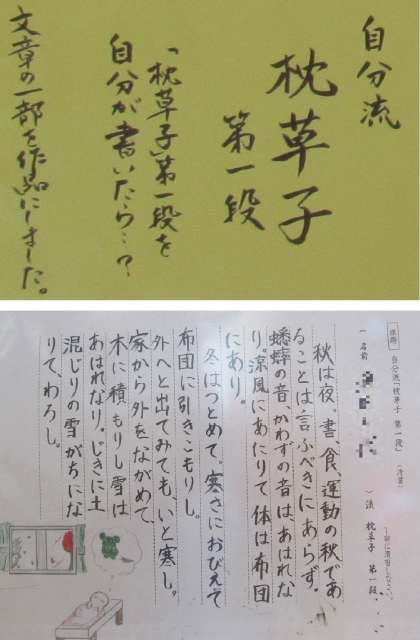 自分流
枕草子
第一段
「枕草子」第一段を
自分が書いたら…?
文章の一部を作品にしました。
自分流「枕草子 第一段」 (清書)
( 名前 ) 流 枕草子 第一段
秋は夜。書、食、運動の秋であ
ることは言ふべきにあらず。
蟋蟀の音、かわずの音はあはれな
り。涼風にあたりて体は布団
にあり。
冬はつとめて、寒さにおびえて
布団に引きこもりし。
外へと出てみても、いと寒し。
家から外をながめて、
木に積もりし雪は
あはれなり。じきに土
混じりの雪がちにな
りて、わろし。